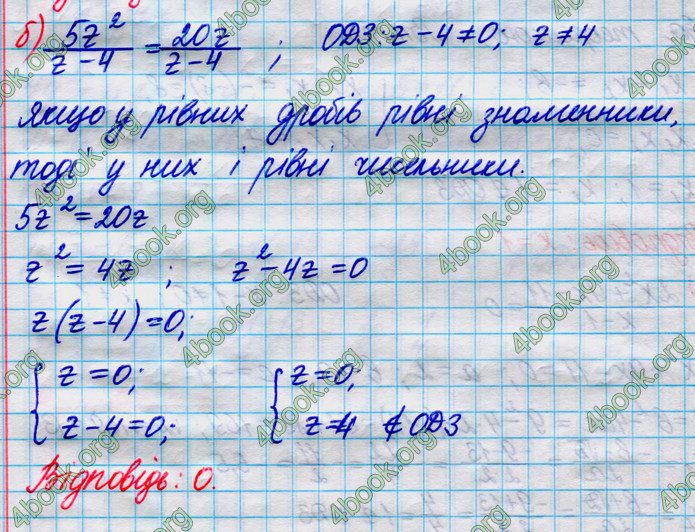 б) 5z²/(z-4) = 20z/(z-4) ; ОДЗ: z-4≠0; z≠4
Якщо у рівних дробів рівні знаменники,
тоді у них і рівні чисельники.
5z² = 20z
z² = 4z ; z²-4z=0
z(z-4)=0;
{ z=0; { z=0;
{ z-4=0; { z=4 ∉ ОДЗ
Відповідь: 0.
4book.org